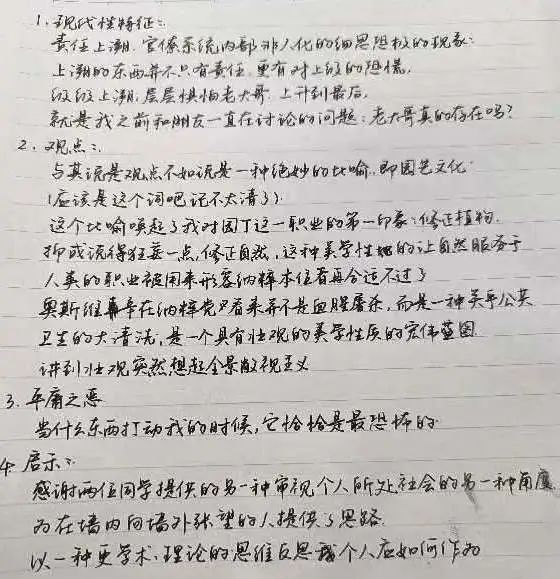 1. 现代性特征:
责任上溯. 官僚系统内部非人化的细思恐极的现象:
上溯的东西并不只有责任. 更有对上级的恐慌.
级级上溯, 层层惧怕老大哥. 上升到最后,
就是我之前和朋友一直在讨论的问题: 老大哥真的存在吗?
2. 观点:
与其说是观点不如说是一种绝妙的比喻. 即园艺文化
(应该是这个词吧记不太清了).
这个比喻唤起了我对园丁这一职业的第一印象: 修正植物.
抑或说得狂妄一点, 修正自然, 这种美学性地的让自然服务于
人类的职业被用来形容纳粹本位者再合适不过了
奥斯维辛在纳粹党看来并不是血腥屠杀, 而是一种关乎公共
卫生的大清洗, 是一个具有壮观的美学性质的宏伟蓝图
讲到壮观突然想起全景敞视主义
3. 平庸之恶
当什么东西打动我的时候, 它恰恰是最恐怖的
4. 启示:
感谢两位同学提供的另一种审视个人所处社会的另一种角度
为在墙内向墙外张望的人提供了思路.
以一种更学术、理论的思维反思我个人应如何作为